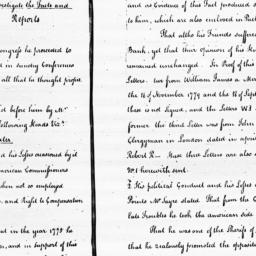 vestigate the Facts and
Reports
ongress he proceeded to
d in sundry Conferences
all that he thought proper
d before him by Mr
Following Heads Viz.
his Losses occasioned by it
American Commissioners
when not so employed
and Right to Compensation
and in the year 1778 he
and in support of this
and as Evidence of this Fact produced
to him, which are also enclosed in
That altho his Friends suffered
Bank, yet that their opinion of his
remained unchanged. In Proof of this
Letters. two from William Jones a Mer
the 16 of November 1779 and the 18 of Sept
thou is not Signed, and the Letters
former the third Letter was from John
Clergyman in London dated in April
Robert R— that these Letters are also
No. 1 herewith sent.
His political Conduct and his Losses
Points Mr Sayre stated That from the
late Troubles he took the american side
That he was one of the Sheriffs of
that he zealously promoted the opposit